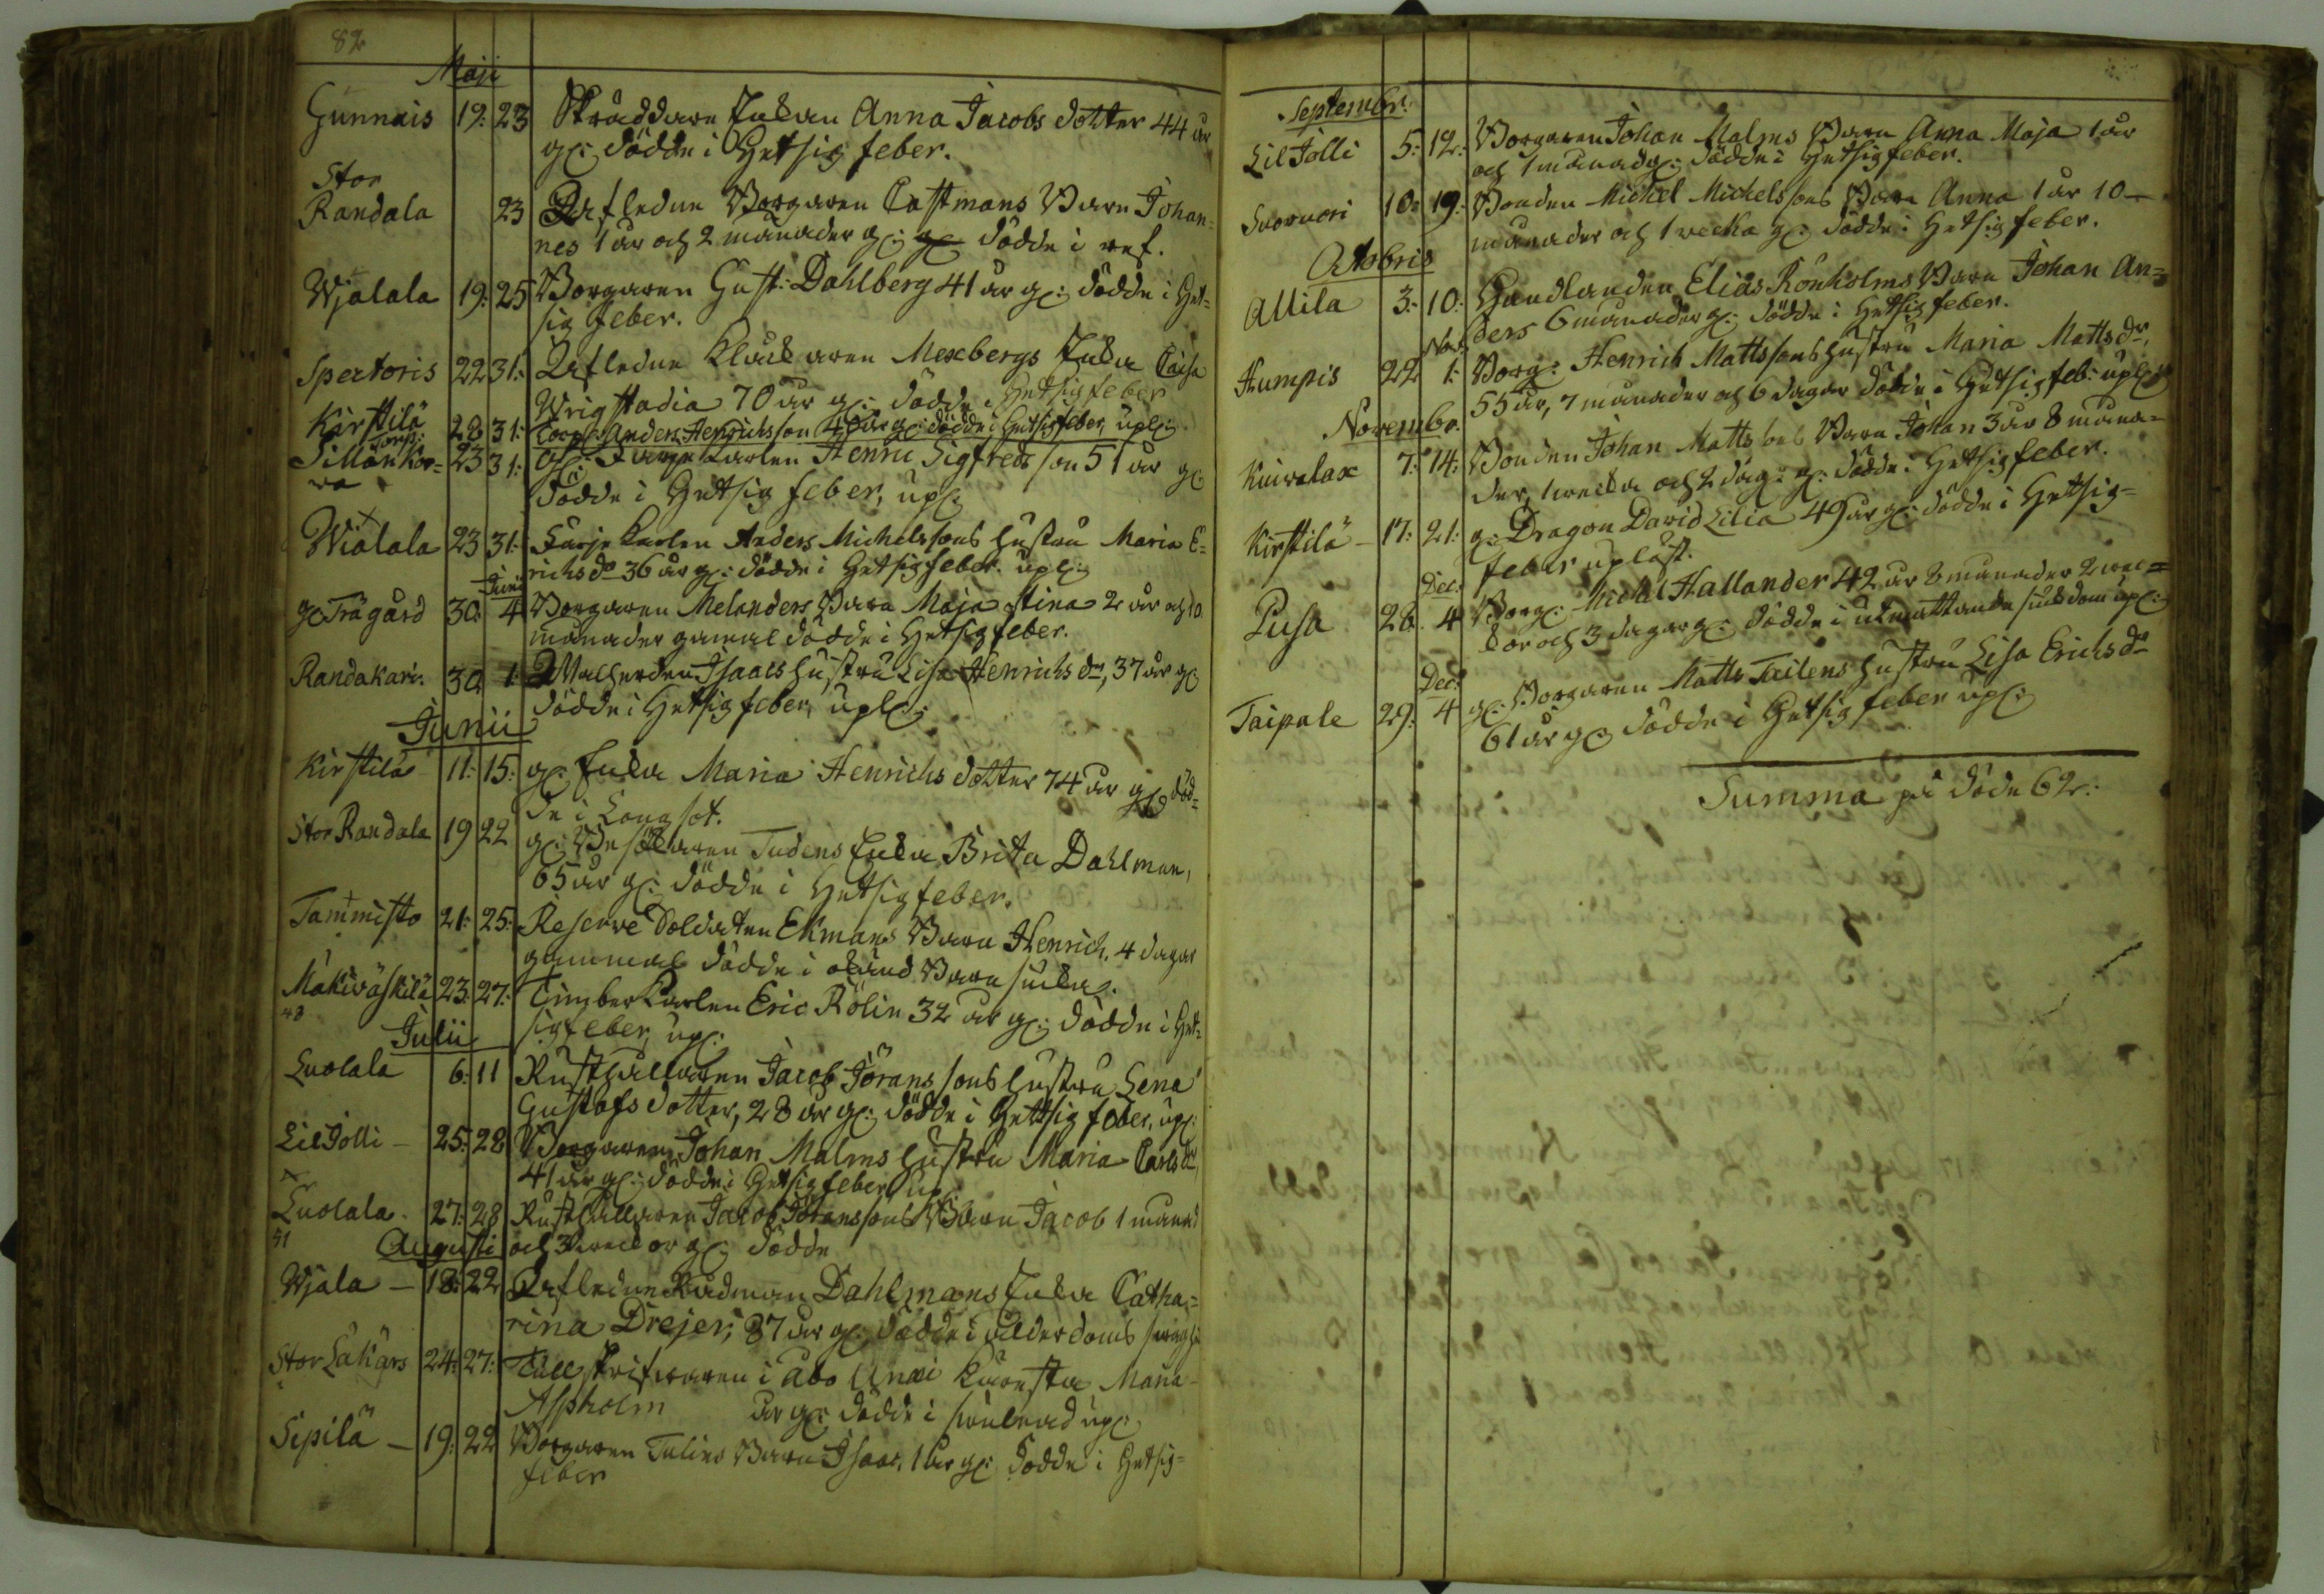 82
Maji
Gunnais 19: 23 Skräddare Enkan Anna Jacobs dotter 44 år
gl: dödde i Hetsig feber.
Stor
Randala 23 Afledne Borgaren Castmans Barn Johan=
nes 1 år och 2 månader gl: dödde i ref.
Wjalala 19: 25 Borgaren Gust: Dahlberg 41 år gl: dödde i Het=
sig feber.
Spectoris 22 31: Afledne Klockaren Mexbergs Enka Caisa
Wrigstadia 70 år gl: dödde i Hetsig feber
Kirstilä 28 31: Corp: Anders Henrichsson år gl: dödde i Hetsig feber, upl:
23 31: gl: Karlen Henric Sigfredsson 51 år gl:
dödde i Hetsig feber, upl:
Wiålala 23 31: Färjekarlen Anders Michelssons hustru Maria E=
richs dr 36 år gl: dödde i Hetsig feber. upl:
Junii
gl Trägård 30: 4 Borgaren Melanders Barn Maja Stina 2 år och 10
månader gamal dödde i Hetsig feber.
Randakari. 30 1: Wallherden Isaacs hustru Lisa Henrichs dr, 37 år gl:
dödde i Hetsig feber, upl:
Junii
Kirstilä 11: 15: gl: Enka Maria Henrichs dotter 74 år gl: död=
de i Longsot.
Stor Randala 19 22 gl: Besökaren Tudens Enka Brita Dahlman,
65 år gl: dödde i Hetsig feber.
Tammisto 21: 25: Reserve Soldaten Ekmans Barn Henrich, 4 dagar
gammal dödde i okänd Barnsiuka.
Mäkiwäskilä 23: 27: Timberkarlen Eric Rölin 32 år gl: dödde i Het=
48
sig feber, upl:
Julii
Luolala 6: 11 Rusthållaren Jacob Jöranssons hustru Lena
Gustafs dotter, 28 år gl: dödde i Hettsig feber, upl:
Lil Jolli 25: 28 Borgaren Johan Malms hustru Maria Carls dr
41 år gl: dödde i Hetsig feber upl:
Luolala. 27: 28 Rusthållaren Jacob Jöranssons Barn Jacob 1 månad
51
och 3 weckor gl: dödde
Augusti
Wjala 18: 22 Afledne Rådman Dahlmans Enka Catha=
rina Drejer, 87 år gl: dödde i ålderdoms
Stor Läkärs 24: 27: Tullskrifwaren i Åbo
Aspholm år gl: dödde i upl:
Sipilä 19: 22 Borgaren Tulins Barn Isaac, 1 år gl: dödde i Hetsig=
feber
Septembr:
Lil Jolli 5: 12: Borgaren Johan Malms Barn Anna Maja 1 år
och 1 månad gl: dödde i Hetsig feber.
Suorvuori 10: 19: Bonden Michel Michelssons Barn Anna 1 år 10
månader och 1 wecka gl: dödde i Hetsig feber.
Octobris
Allila 3: 10: Handlanden Elias Rönholms Barn Johan An=
ders 6 månader gl: dödde i Hetsig feber.
Nov:
Humpis 22 1: Borg: Henrich Mattssons hustru Maria Matts dr,
55 år, 7 månader och 6 dagar dödde i Hetsig feb: upl:
Novembr.
Kuiwalax 7: 14: Bonden Johan Mattssons Barn Johan 3 år 8 måna=
der, 1 wecka och 2 dag: gl: dödde i Hetsig feber.
Kirstilä 17: 21: gl: Dragon David Lilia 49 år gl: dödde i Hettsig=
feber upläst.
Dec:
Pusa 28. 4 Borg: Michel Hallander 42 år 8 månader 2 wec=
kor och 3 dagar gl: dödde i utmattande siukdom upl:
Dec:
Taipale 29: 4 gl: Borgaren Matts Tailens hustru Lisa Erichs dr
61 år gl: dödde i Hetsig feber upl:
Summa på döde 62: